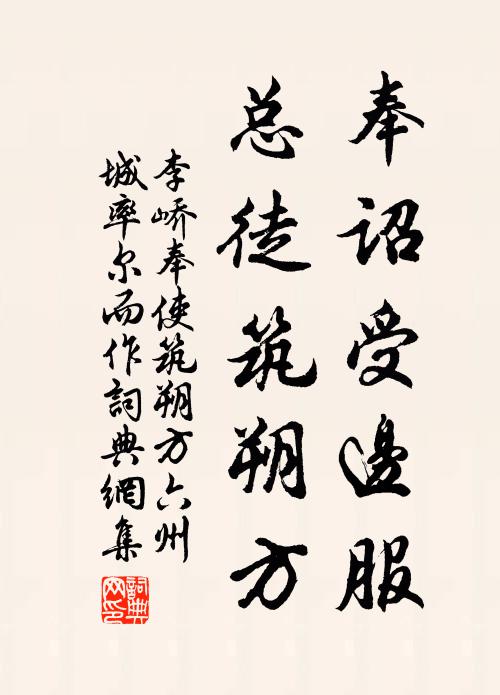 奉诏受邊服
总徒筑朔方
李峤奉使筑朔方六州
城率尔而作詞典網集
詞典网印